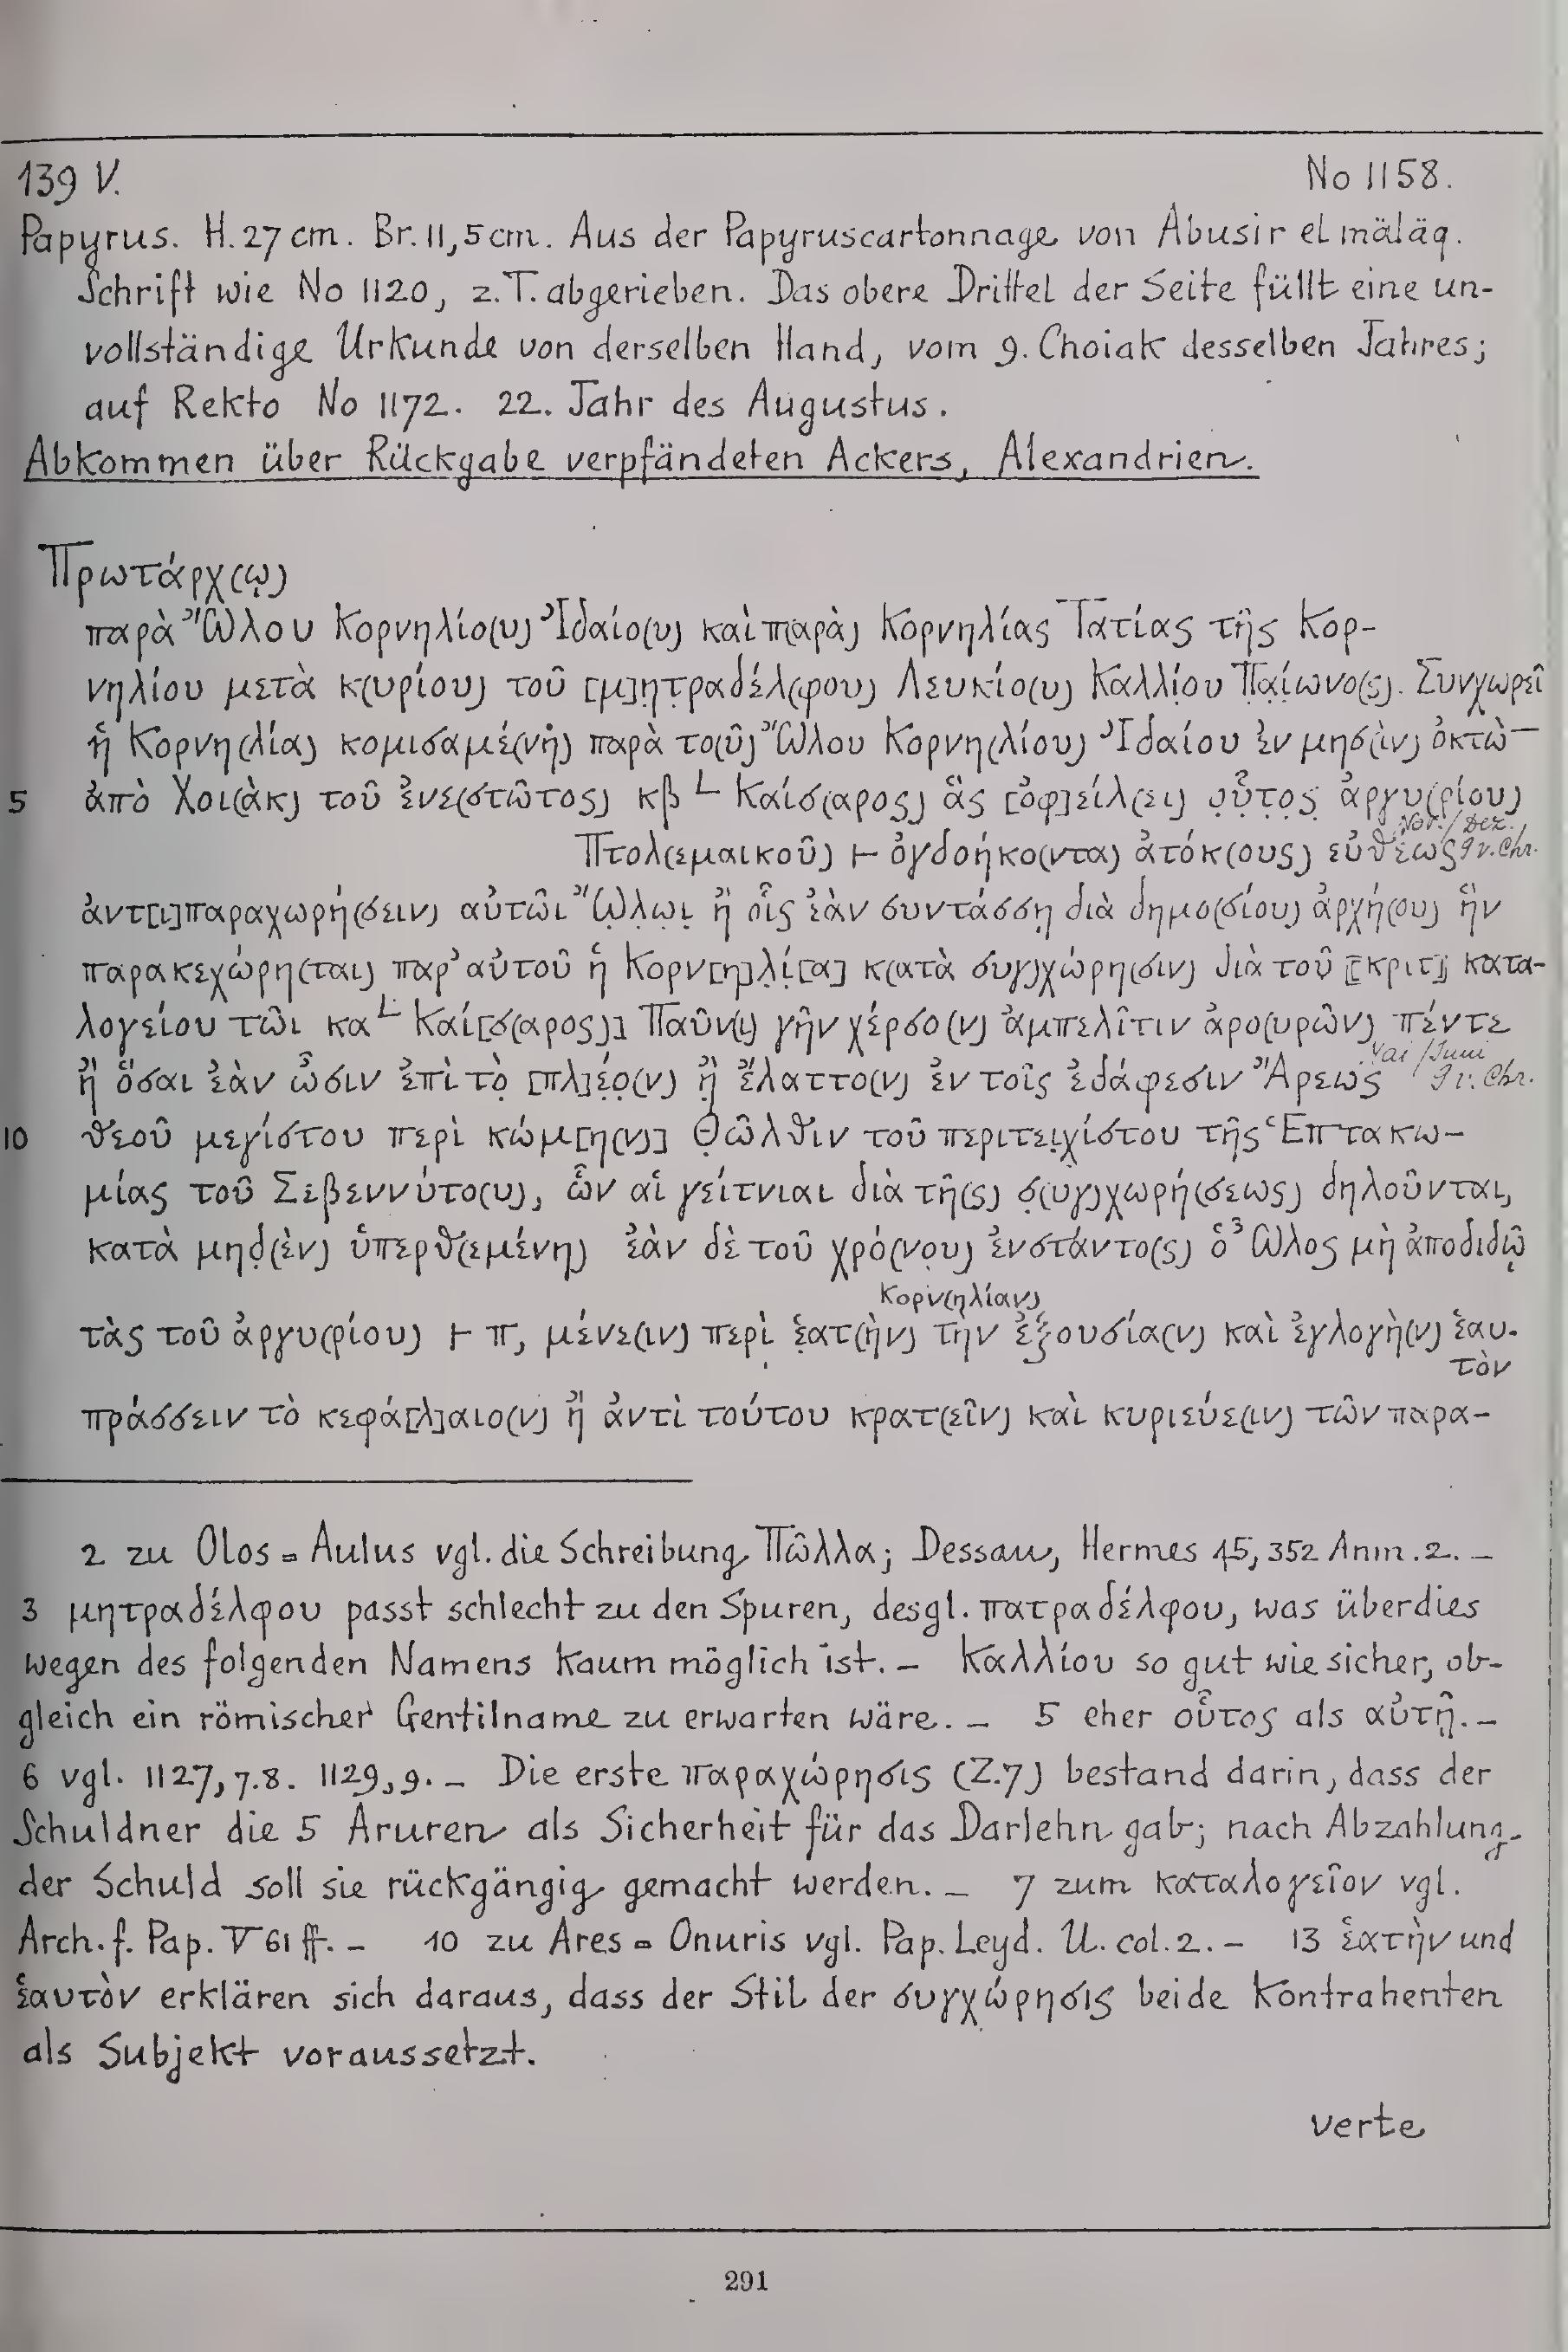 139 V.
No 1158.
Papyrus. H. 27 cm. Br. 11,5 cm. Aus der Papyruscartonnage von Abusir el mäläq.
Schrift wie No 1120, z.T. abgerieben. Das obere Drittel der Seite füllt eine un-
vollständige Urkunde von derselben Hand, vom 9. Choiak desselben Jahres;
auf Rekto No 1172. 22. Jahr des Augustus.
Abkommen über Rückgabe verpfändeten Ackers, Alexandrien.
Πρωτάρχ(ῳ)
παρὰ Ὤλου Κορνηλίο(υ) Ἰδαίο(υ) καὶ π(αρὰ) Κορνηλίας Τατίας τῆς Κορ-
νηλίου μετὰ κ(υρίου) τοῦ [μ]ητ̣ραδέλ(φου) Λευκίο(υ) Καλλί̣ου Π̣α̣ί̣ωνο(ς). Συνχωρεῖ
ἡ Κορνη(λία) κομισαμέ(νη) παρὰ το(ῦ) Ὤλου Κορνη(λίου) Ἰδαίου ἐν μησ(ὶν) ὀκτὼ —
5 ἀπὸ Χοι(ὰκ) τοῦ ἐνε(στῶτος) κβ L Καίσ(αρος) ἃς [ὀφ]είλ(ει) ο̣ὗ̣τ̣ο̣ς̣ ἀργυ(ρίου)
Nov./Dez.
9 v. Chr.
Πτολ(εμαικοῦ) ⊢ ὀγδοήκο(ντα) ἀτόκ(ους) εὐθέως
ἀντ[ι]παραχωρή(σειν) αὐτῶι Ὤ̣λ̣ω̣ι̣ ἢ ο̣ἷς ἐὰν συντάσσῃ διὰ δημο(σίου) ἀρχή(ου) ἣν
παρακεχώρη(ται) παρ' αὐτοῦ ἡ Κορν[η]λ̣ί̣[α] κ(ατὰ συγ)χώρη(σιν) διὰ τοῦ [κριτ] κατα-
λογείου τῶι κα L Καί[σ(αρος)] Παῦν(ι) γῆν χέρσο(ν) ἀμπελῖτιν ἀρο(υρῶν) πέντε
Mai/Juni
9 v. Chr.
ἢ ὅσαι ἐὰν ὦσιν ἐπὶ τὸ̣ [πλ]έ̣ο̣(ν) ἢ̣ ἔλαττο(ν) ἐν τοῖς ἐδάφεσιν Ἄρεως
10 θεοῦ μεγίστου περὶ κώμ[η(ν)] Θ̣ῶλθιν τοῦ περιτει̣χίστου τῆς Ἑπτακω-
μίας τοῦ Σεβεννύτο(υ), ὧν αἱ γείτνιαι διὰ τῆ(ς) σ̣(υγ)χωρή(σεως) δηλοῦνται,
κατὰ μηδ̣(ὲν) ὑπερθ(εμένη) ἐὰν δὲ τοῦ χρό(ν̣ου) ἐνστάντο(ς) ὁ Ὦλος μὴ ἀποδιδῷ
Κορν(ηλίαν)
τὰς τοῦ ἀργυ(ρίου) ⊢ π, μένε(ιν) περὶ̣ ἑ̣ατ(ὴν) τὴν ἐξουσία(ν) καὶ ἐγλογὴ(ν) ἑαυ-
τὸν
πράσσειν τὸ κεφά[λ]αιο(ν) ἢ ἀντὶ τούτου κρατ(εῖν) καὶ κυριεύε(ιν) τῶν παρα-
2 zu Olos = Aulus vgl. die Schreibung Πῶλλα; Dessau, Hermes 45, 352 Anm. 2. —
3 μητραδέλφου passt schlecht zu den Spuren, desgl. πατραδέλφου, was überdies
wegen des folgenden Namens kaum möglich ist. — Καλλίου so gut wie sicher, ob-
gleich ein römischer Gentilname zu erwarten wäre. — 5 eher οὗτος als αὐτῇ. —
6 vgl. 1127, 7.8. 1129, 9. — Die erste παραχώρησις (Z. 7) bestand darin, dass der
Schuldner die 5 Aruren als Sicherheit für das Darlehn gab; nach Abzahlung
der Schuld soll sie rückgängig gemacht werden. — 7 zum καταλογεῖον vgl.
Arch. f. Pap. V 61 ff. — 10 zu Ares = Onuris vgl. Pap. Leyd. U. col. 2. — 13 ἑατὴν und
ἑαυτὸν erklären sich daraus, dass der Stil der συγχώρησις beide Kontrahenten
als Subjekt voraussetzt.
verte
291